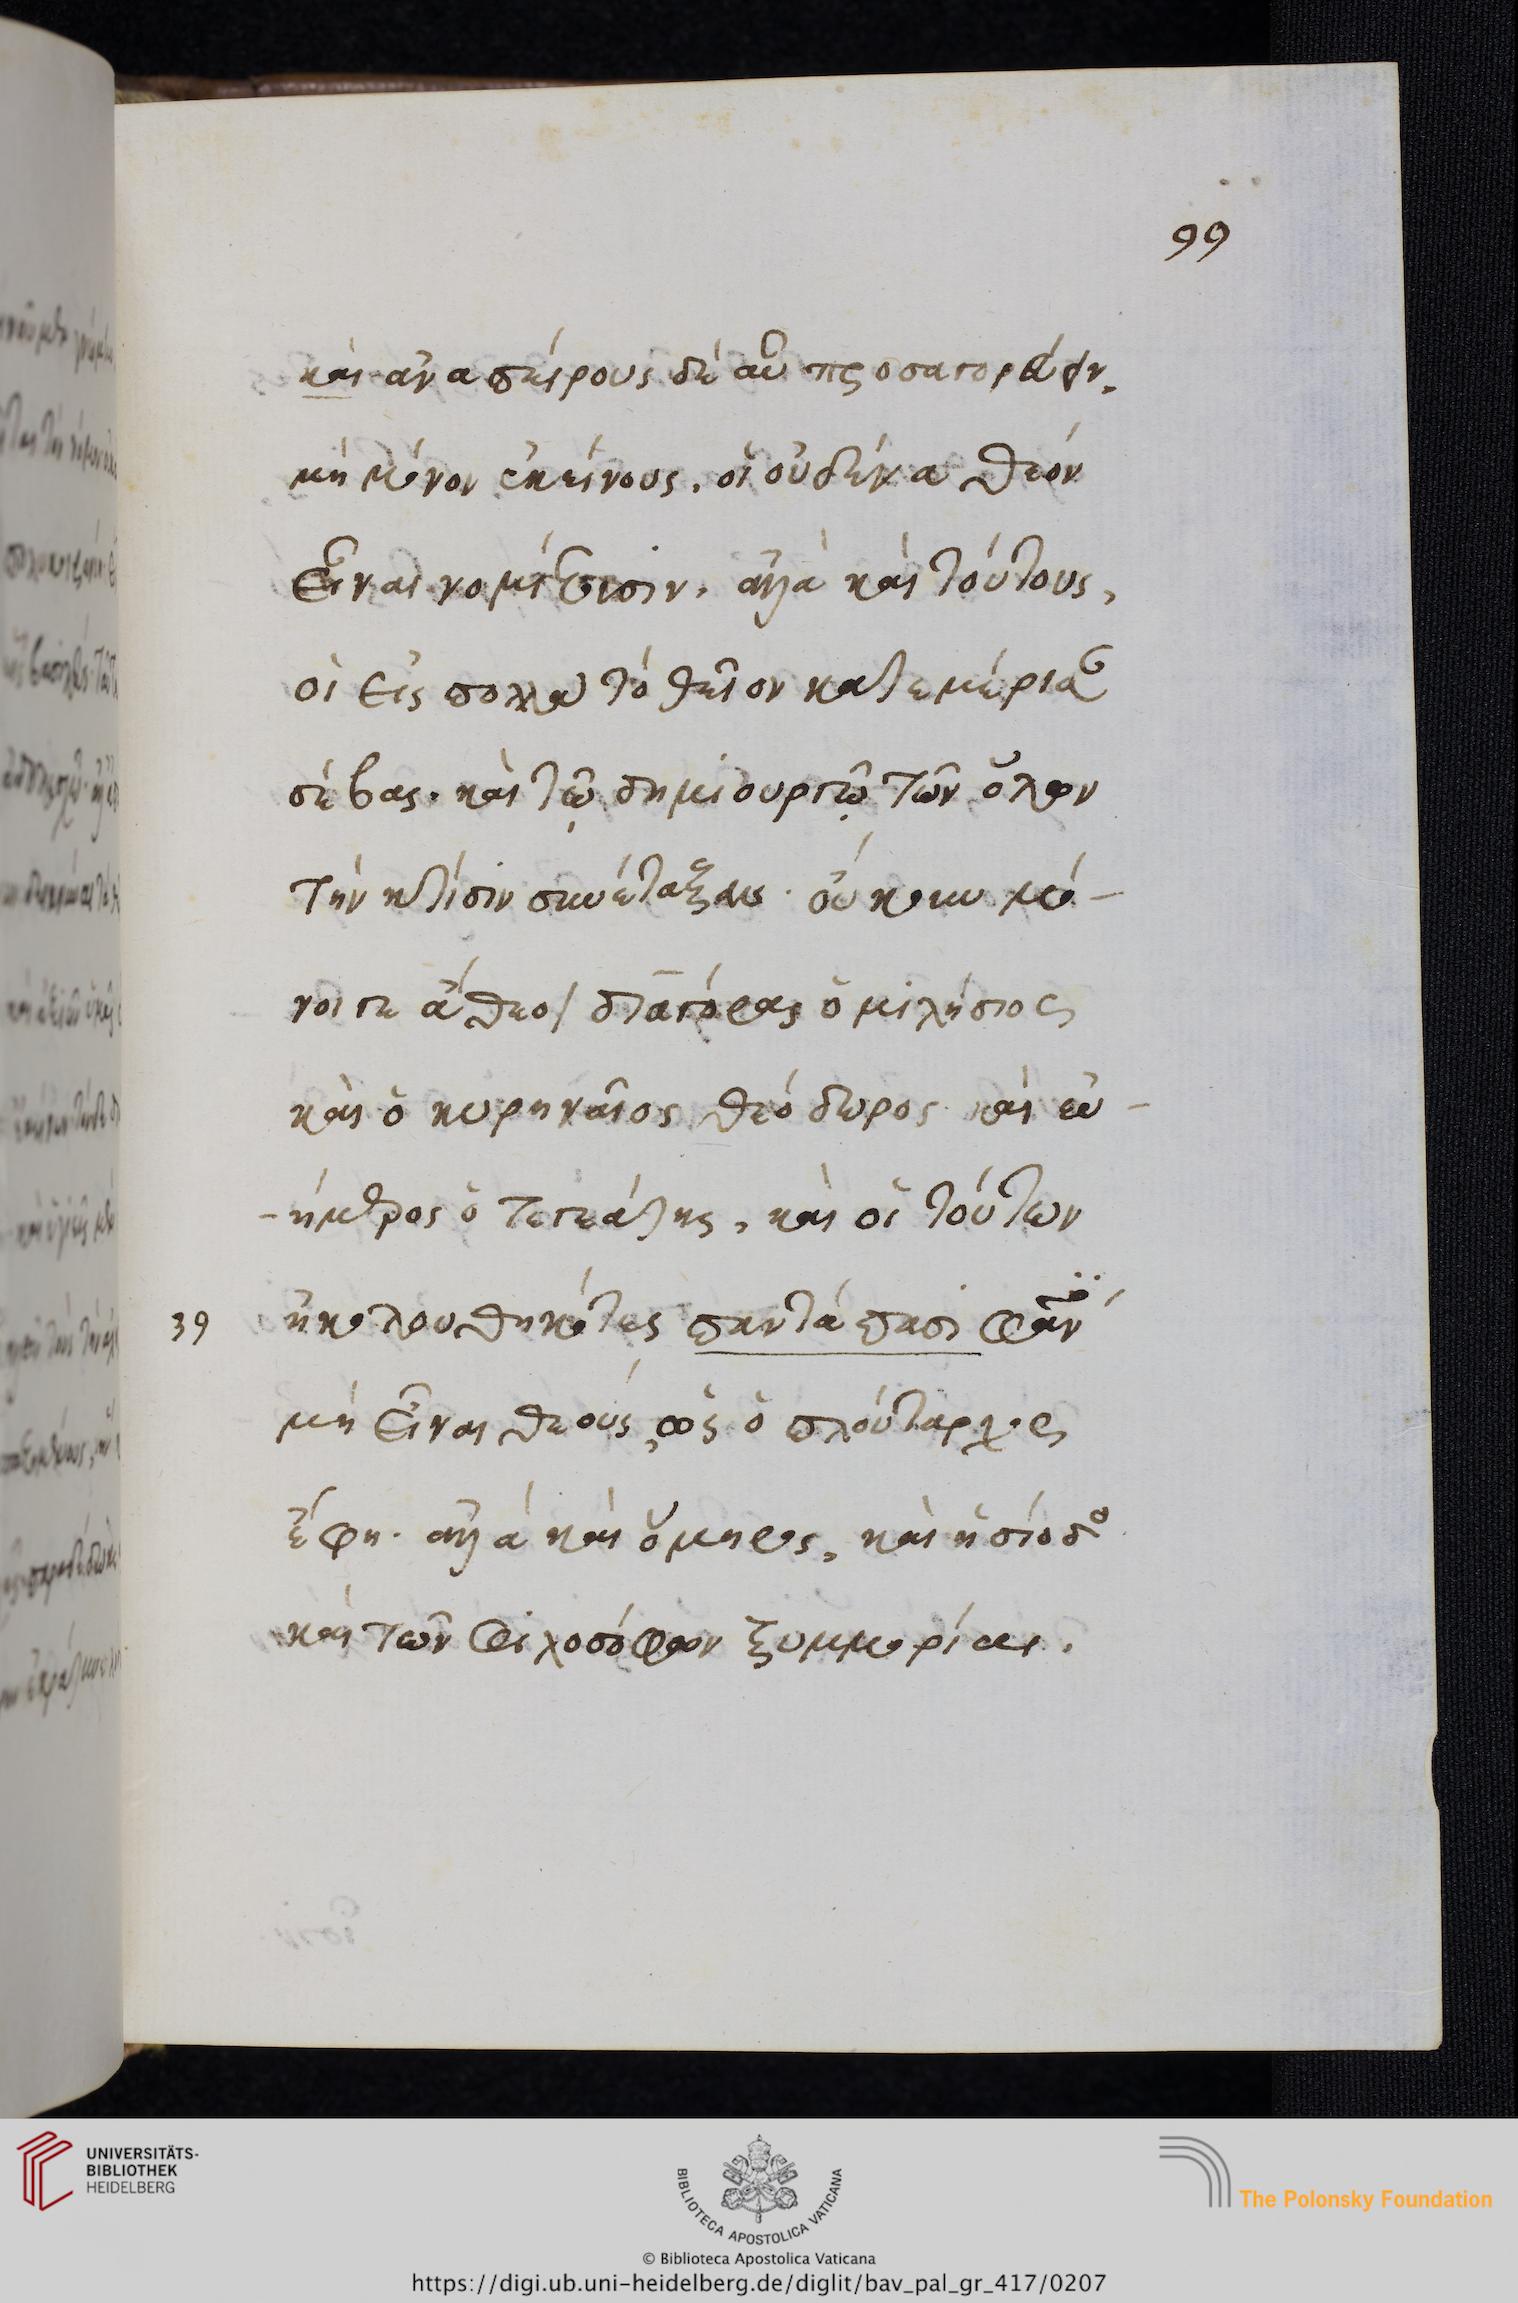 99
καὶ ἀναπείρους δὲ αὖ προσαγορεύειν,
μὴ μόνον ἐκείνους, οἳ οὐδένα θεόν
εἶναι νομίζουσιν, ἀλλὰ καὶ τούτους,
οἳ εἰς πολλὰ τὸ θεῖον κατεμέρισαν
σέβας. καὶ τῷ δημιουργῷ τῶν ὅλων
τὴν κτίσιν συνέταξαν. οὔκουν μό-
νοι γε ἄθεοι διαγόρας ὁ μιλήσιος
καὶ ὁ κυρηναῖος θεόδωρος καὶ εὐ-
-ήμερος ὁ τεγεάτης, καὶ οἱ τούτων
39 ἠκολουθηκότες παντάπασι φάν
μὴ εἶναι θεούς, ὡς ὁ πλούταρχος
ἔφη. ἀλλὰ καὶ ὅμηρος, καὶ ἡσίοδο
καὶ τῶν φιλοσόφων ξυμμορίαι.
UNIVERSITÄTS-
BIBLIOTHEK
HEIDELBERG
BIBLIOTECA APOSTOLICA VATICANA
The Polonsky Foundation
© Biblioteca Apostolica Vaticana
https://digi.ub.uni-heidelberg.de/diglit/bav_pal_gr_417/0207